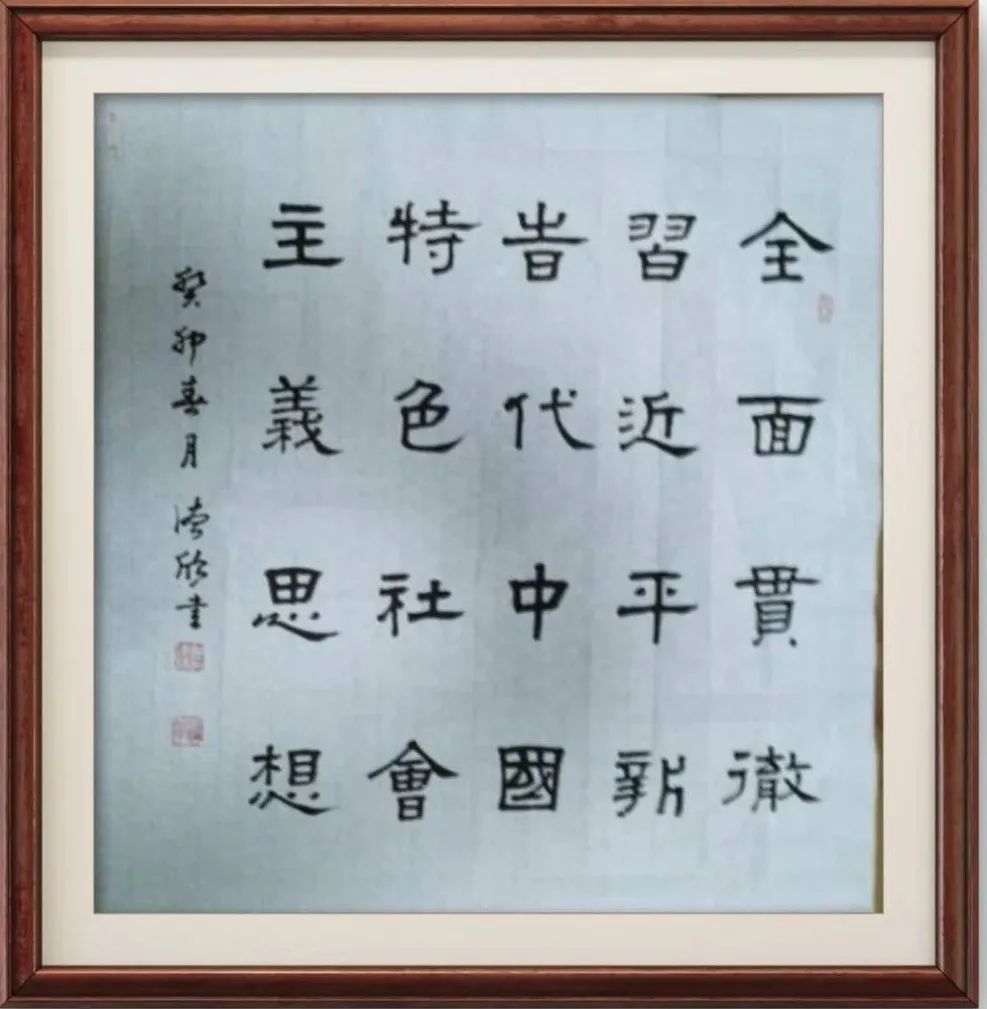 全面貫徹
習近平新
旹代中國
特色社會
主義思想
癸卯春月 德欣書